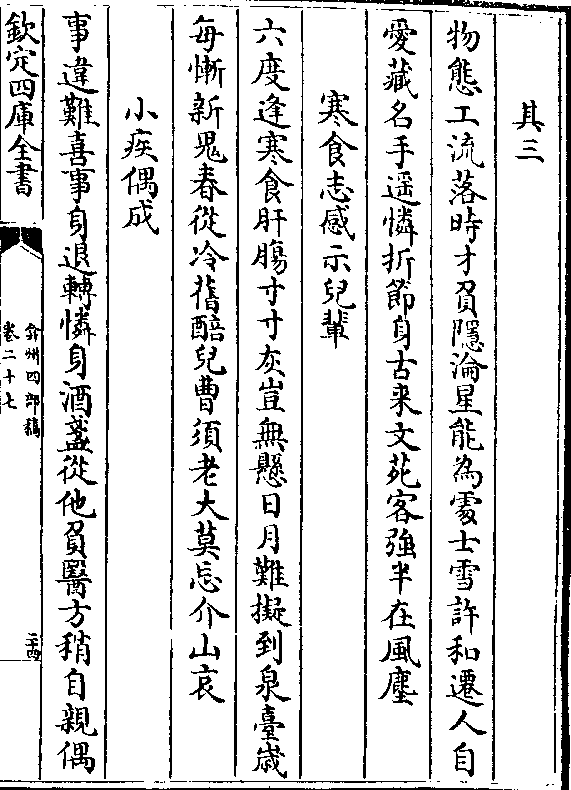 其三
物態工流落時才負隱淪星能為處士雪許和遷人自
愛藏名手遥憐折節身古来文苑客強半在風塵
寒食志感示兒輩
六度逢寒食肝腸寸寸灰豈無懸日月難擬到泉臺歳
每慚新鬼春從冷舊醅兒曹須老大莫忘介山哀
小疾偶成
事違難喜事身退轉憐身酒盞從他負醫方稍自親偶
欽定四庫全書
弇州四部稿
卷二十七
二十四